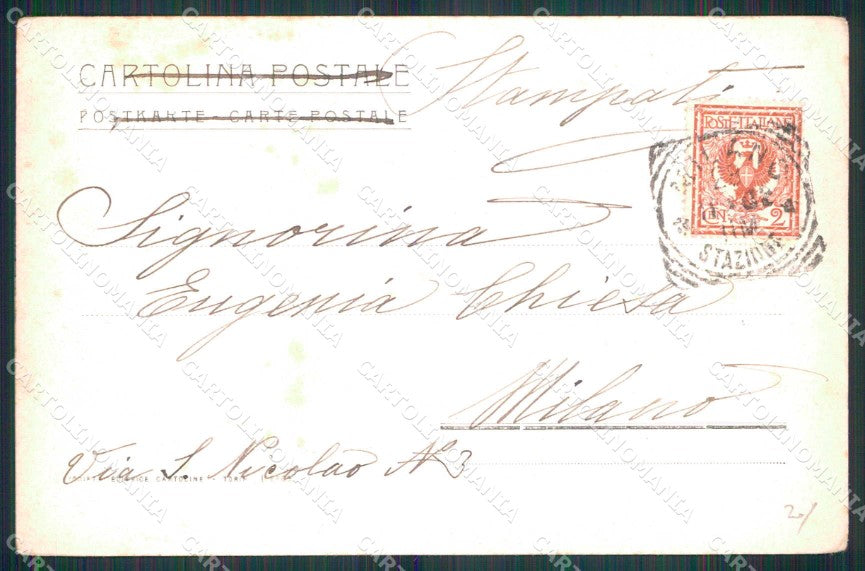 CARTOLINA POSTALE
Stampati
POSTKARTE - CARTE POSTALE
POSTE·ITALIANE
CEN. 2
STAZIONE
Signorina
Eugenia Chiesa
Milano
Via S. Nicolao N 3
CARTOLINE
20/
CARTOLINOMANIA